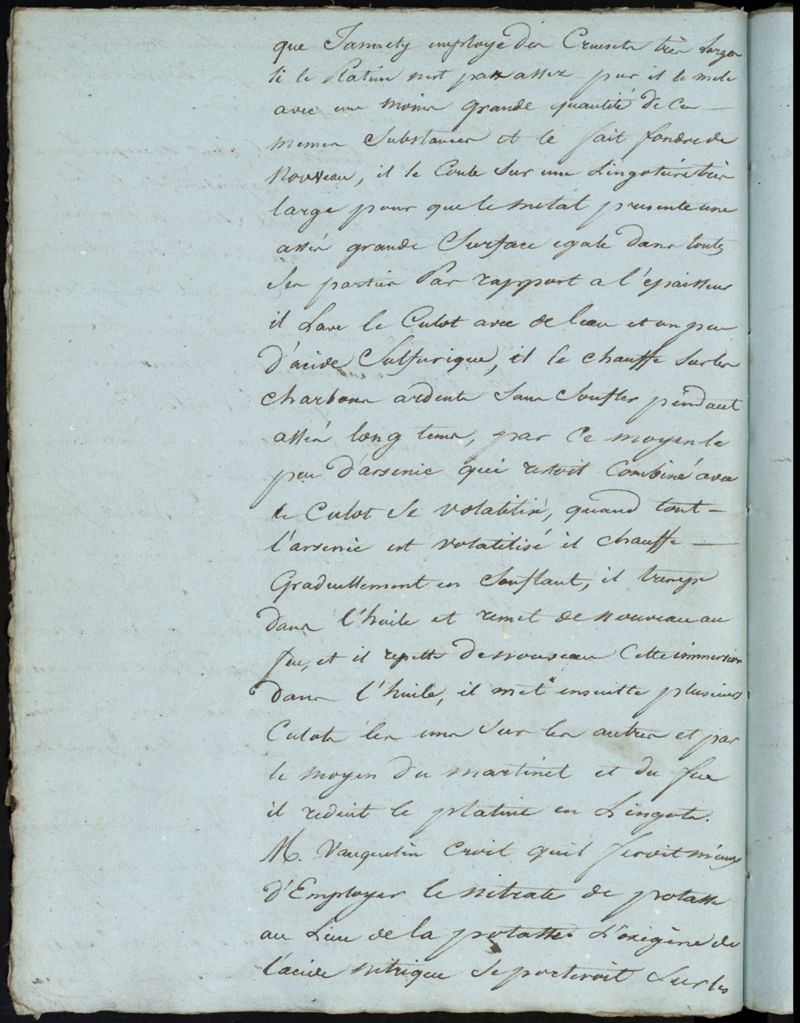 que Jannety employe des Creusets très larges
si le Platine n'est pas assez pur il le mele
avec une moins grande quantité de ces
memes Substances et le fait fondre de
Nouveau, il le Coule Sur une Lingotiere très
large pour que le metal presente une
assés grande Surface egale dans toutes
Ses parties Par rapport a l'épaisseur
il Lave le Culot avec de l'eau et un peu
d'acide Sulfurique, il le chauffe Sur les
charbons ardents Sans Souffler pendant
assés long tems, par Ce moyen le
peu d'arsenic qui restoit Combiné avec
le Culot Se volatilise, quand tout
l'arsenic est volatilisé il chauffe
Graduellement en Souflant, il trempe
dans l'huile et remet de nouveau au
feu, et il repette de nouveau Cette immersion
dans l'huile, il met ensuitte plusieurs
Culots les uns Sur les autres et par
le moyen du martinet et du feu
il reduit le platine en Lingots.
M. Vauquelin Croit qu'il Seroit mieux
d'Employer le nitrate de potasse
au Lieu de la potasse L'oxigène de
l'acide nitrique Se porteroit Sur les